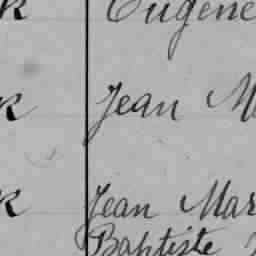 k Eugene
k Jean M
k Jean Mar
Baptiste